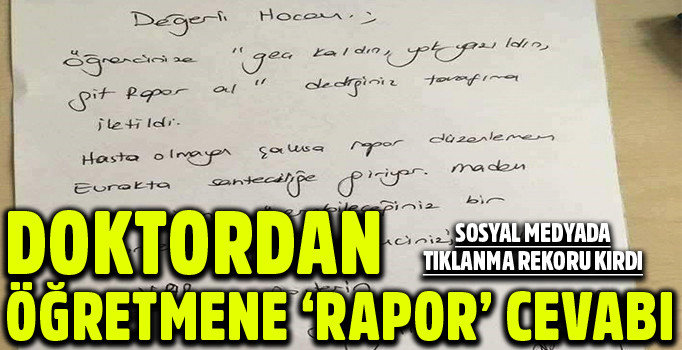 Değerli Hocam :)
Öğrencinize "geç kaldın, yok yazıldın,
git Rapor al" dediğiniz tarafıma
iletildi.
Hasta olmayan şahısa rapor düzenlemem
Evrakta sahteciliğe giriyor. madem
bir
DOKTORDAN
SOSYAL MEDYADA
TIKLANMA REKORU KIRDI
ÖĞRETMENE ‘RAPOR’ CEVABI